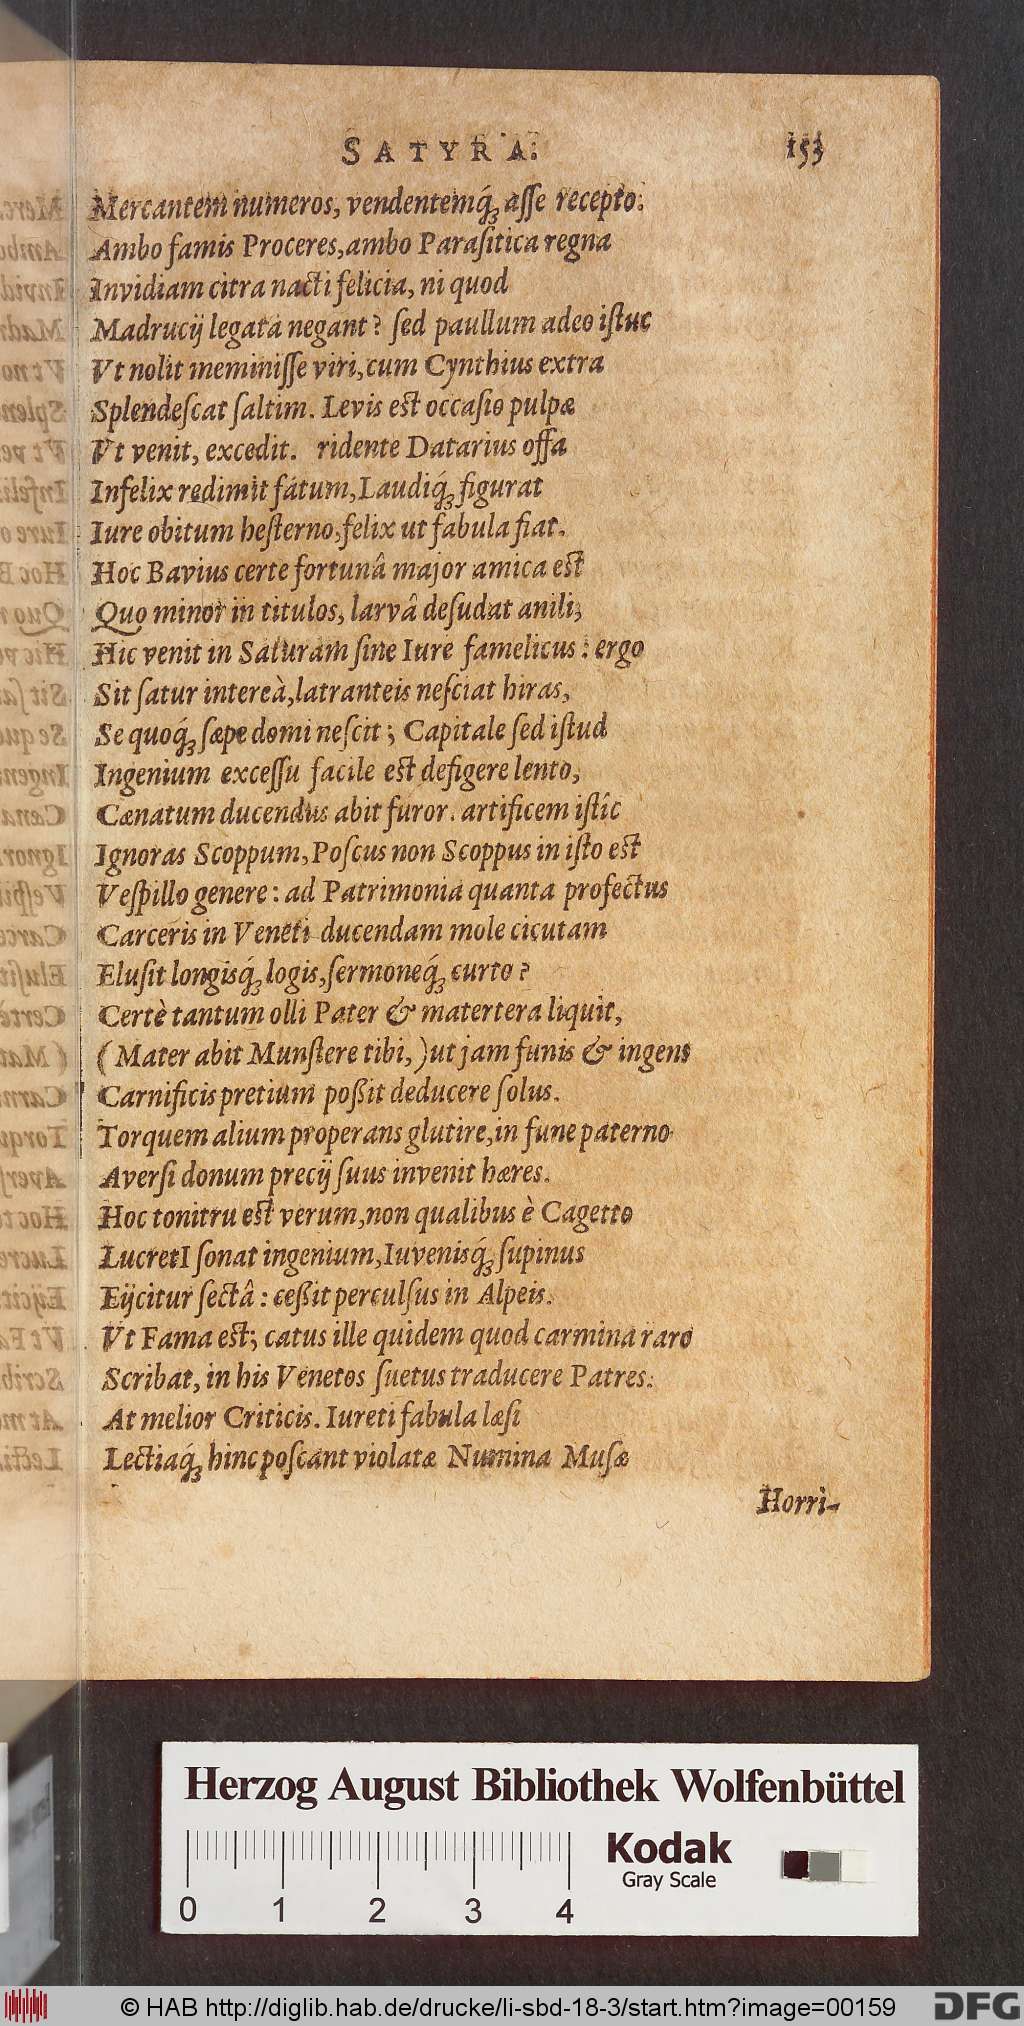 SATYRA. 153
Mercantem numeros, vendentemq́; aſſe recepto.
Ambo famis Proceres, ambo Paraſitica regna
Invidiam citra nacti felicia, ni quod
Madrucij legata negant? ſed paullum adeo iſtuc
Vt nolit meminiſſe viri, cum Cynthius extra
Splendeſcat ſaltim. Levis eſt occaſio pulpæ
Vt venit, excedit. ridente Datarius offa
Infelix redimit fatum, Laudiq́; figurat
Iure obitum heſterno, felix ut fabula fiat.
Hoc Bavius certe fortunâ major amica eſt
Quo minor in titulos, larvâ deſudat anili;
Hic venit in Saturam ſine Iure famelicus: ergo
Sit ſatur intereà, latranteis neſciat hiras,
Se quoq́; ſæpe domi neſcit; Capitale ſed iſtud
Ingenium exceſſu facile eſt defigere lento,
Cænatum ducendus abit furor. artificem iſtîc
Ignoras Scoppum, Poſcus non Scoppus in iſto eſt
Veſpillo genere: ad Patrimonia quanta profectus
Carceris in Veneti ducendam mole cicutam
Eluſit longisq́; logis, ſermoneq́; curto?
Certè tantum olli Pater & matertera liquit,
(Mater abit Munſtere tibi,) ut jam funis & ingens
Carnificis pretium poßit deducere ſolus.
Torquem alium properans glutire, in fune paterno
Averſi donum precij ſuus invenit hæres.
Hoc tonitru eſt verum, non qualibus è Cagetto
LucretI ſonat ingenium, Iuvenisq́; ſupinus
Eijcitur ſectâ: ceßit perculſus in Alpeis.
Vt Fama eſt; catus ille quidem quod carmina raro
Scribat, in his Venetos ſuetus traducere Patres.
At melior Criticis. Iureti fabula læſi
Lectiaq́; hinc poſcant violatæ Numina Muſæ
Horri-
Herzog August Bibliothek Wolfenbüttel
Kodak
Gray Scale
0 1 2 3 4
© HAB http://diglib.hab.de/drucke/li-sbd-18-3/start.htm?image=00159 DFG